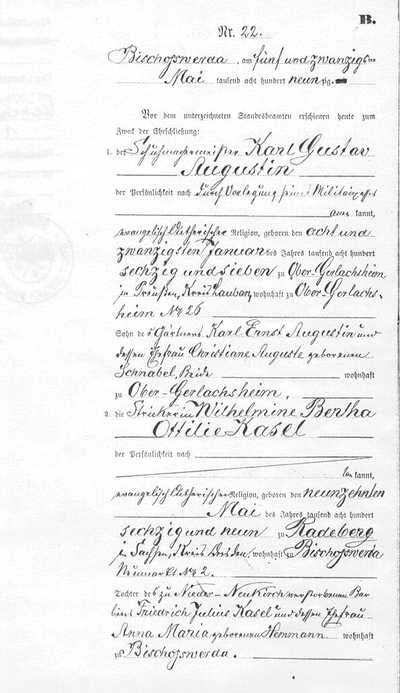 B.
Nr. 22.
Bischofswerda, am fünf und zwanzigsten
Mai tausend acht hundert neunzig
Vor dem unterzeichneten Standesbeamten erschienen heute zum
Zweck der Eheschließung:
1. der Schuhmachermeister Karl Gustav
Augustin
der Persönlichkeit nach durch Vorlegung seines Militairpasses
aner kannt,
evangelisch lutherischer Religion, geboren den acht und
zwanzigsten Januar des Jahres tausend acht hundert
sechzig und sieben zu Ober-Gerlachsheim
in Preußen, Kreis Lauban, wohnhaft zu Ober-Gerlachs-
heim No 26
Sohn des Gärtners Karl Ernst Augustin und
dessen Ehefrau Christiane Auguste geborenen
Schnabel, Beide wohnhaft
zu Ober-Gerlachsheim,
2. die Strickerin Wilhelmine Bertha
Ottilie Kasel
der Persönlichkeit nach
be kannt,
evangelisch lutherischer Religion, geboren den neunzehnten
Mai des Jahres tausend acht hundert
sechzig und neun zu Radeberg
in Sachsen, Kreis Dresden, wohnhaft zu Bischofswerda
Neumarkt No 2.
Tochter des zu Nieder-Neukirch verstorbenen
Friedrich Julius Kasel und dessen Ehefrau
Anna Maria geborenen Hemmann wohnhaft
zu Bischofswerda.